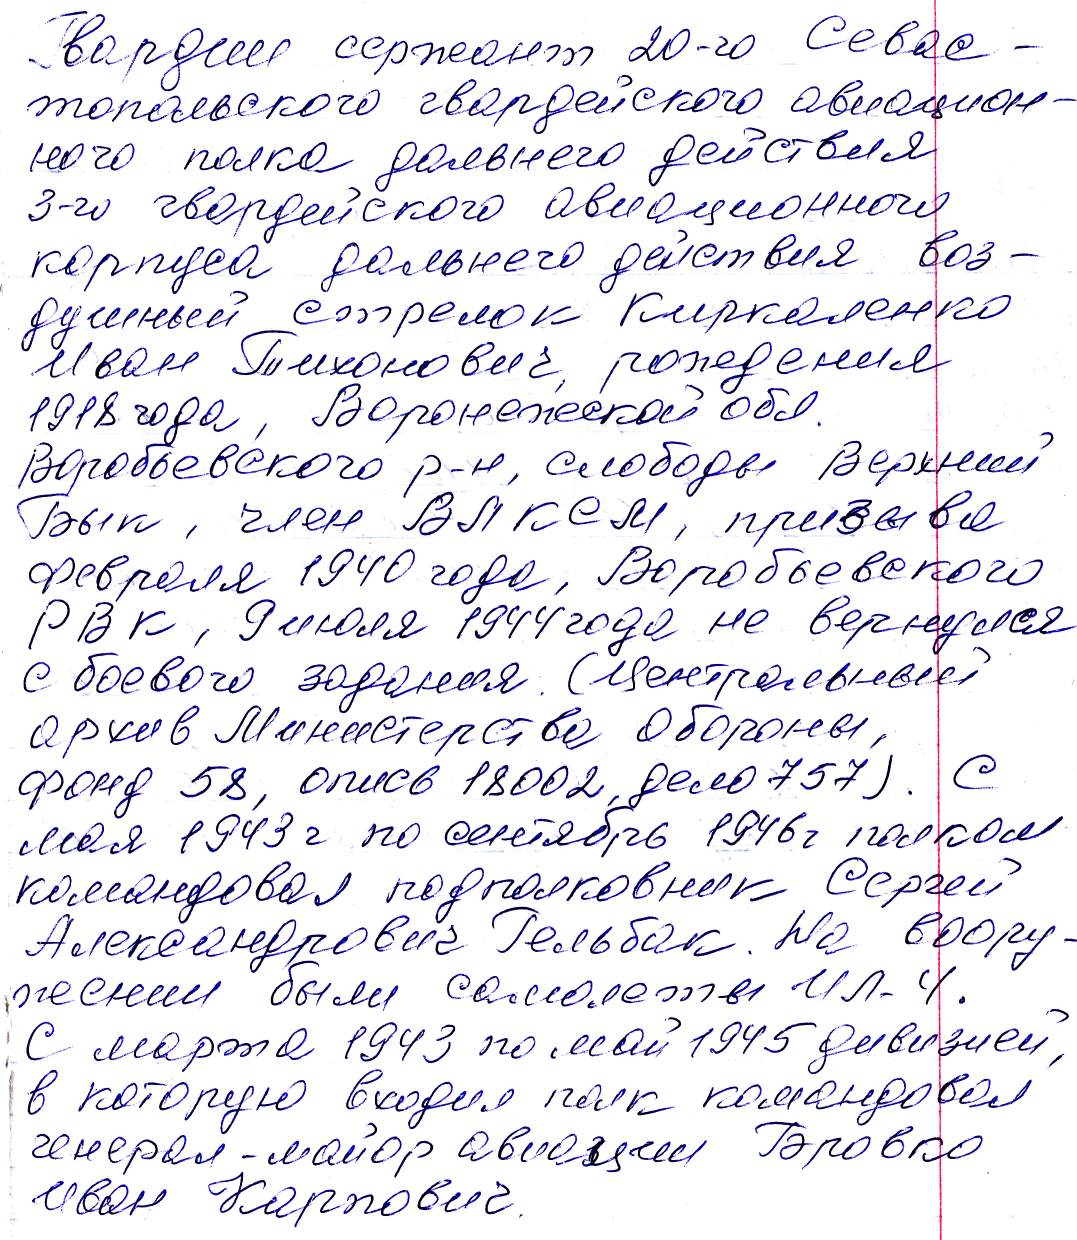 Гвардии сержант 20-го Севас-
топольского гвардейского авиацион-
ного полка дальнего действия
3-го гвардейского авиационного
корпуса дальнего действия воз-
душный стрелок Киркаленко
Иван Тихонович, рождения
1918 года, Воронежской обл.
Воробьевского р-н, слободы Верхний
Бык, член ВЛКСМ, призыва
февраля 1940 года, Воробьевского
РВК, 9 июля 1944 года не вернулся
с боевого задания. (Центральный
архив Министерства Обороны,
фонд 58, опись 18002, дело 757). С
мая 1943 г по сентябрь 1946 г полком
командовал подполковник Сергей
Александрович Гельбак. На воору-
жении были самолеты ИЛ-4.
С марта 1943 по май 1945 дивизией,
в которую входил полк командовал
генерал-майор авиации Бровко
Иван Карпович.